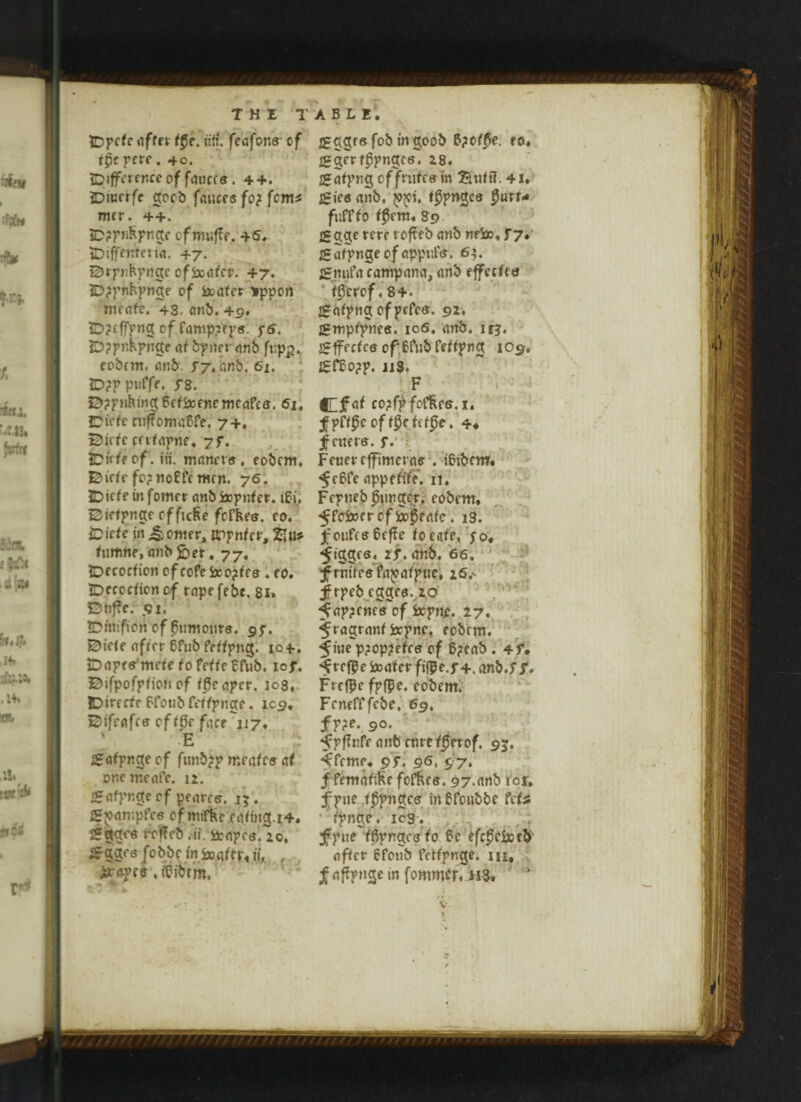 THE TABLE.
Dyete after the. iiii. seasons of
the yere. 40.
Difference of sauces. 44.
Diuerse good sauces for som-
mer. 44.
Drynkynge of muste. 46.
Diffenteria. 47.
Drynkynge of water. 47.
Drynkynge of water vppon
meate. 48. and. 49.
Dressyng of lampreys. 56.
Drynkynge at dyner and supp.
eodem. and. 57. and. 61.
Dry pulse. 58.
Drynking betwene meales. 61.
Diete customable. 74.
Diete certayne. 75.
Diete of. iii. maners. eodem.
Diete for noble men. 76.
Diete in somer and wynter. ibi.
Dietynge of sicke folkes. eo.
Diete in Somer, Wynter, Au-
tumne, and Ver. 77.
Decoction of cole wortes. eo.
Decoction of rape sede. 81.
Duste. 91.
Diuision of humours. 95.
Diete after blud lettyng. 104.
Dayes mete to lette blud. 105.
Disposytion of the ayer. 108.
Directe bloud lettynge. 109.
Diseases of the face. 117.
E
Eatynge of sundry meates at
one meale. 12.
Eatynge of peares. 13.
Examples of milke eating. 14.
Egges rosted .ii. wayes. 20.
Egges sodde in water, ii,
wayes, ibidem.
Egges sod in good brothe. eo.
Eger thynges. 28.
Eatyng of fruites in Autũ. 41.
Eies and. xxi. thynges hurt-
full to them. 89
Egge rere rosted and new. 57.
Eatynge of appuls. 63.
Enula campana, and effectes
therof. 84.
Eatyng of yeles. 92.
Emptynes. 106. and. 113.
Effectes of blud lettyng 109.
Elbory. 118.
F
¶ Fat corsy folkes. 1.
Fylthe of the tethe. 4.
Feuers. 5.
Feuer effimeras. ibidem.
Feble appetite. 11.
Feyned hunger. eodem.
Flower of wheate. 18.
Foules beste to eate. 50.
Figges. 25. and. 66.
Fruites laxatyue. 26.
Fryed egges. 20
Fayrenes of wyne. 27.
Fragrant wyne. eodem.
Fiue propretes of bread. 45.
Freshe water fishe. 54. and. 55.
Freshe fyshe. eodem.
Fenell sede. 69.
Fyre. 90.
Fystule and cure therof. 93.
Fleme. 95. 96. 97.
Flematike folkes. 97. and 101.
Fyue thynges in bloudde let-
tynge. 108.
Fyue thynges to be eschewed
after bloud lettynge. 111.
Fastynge in sommer. 118.